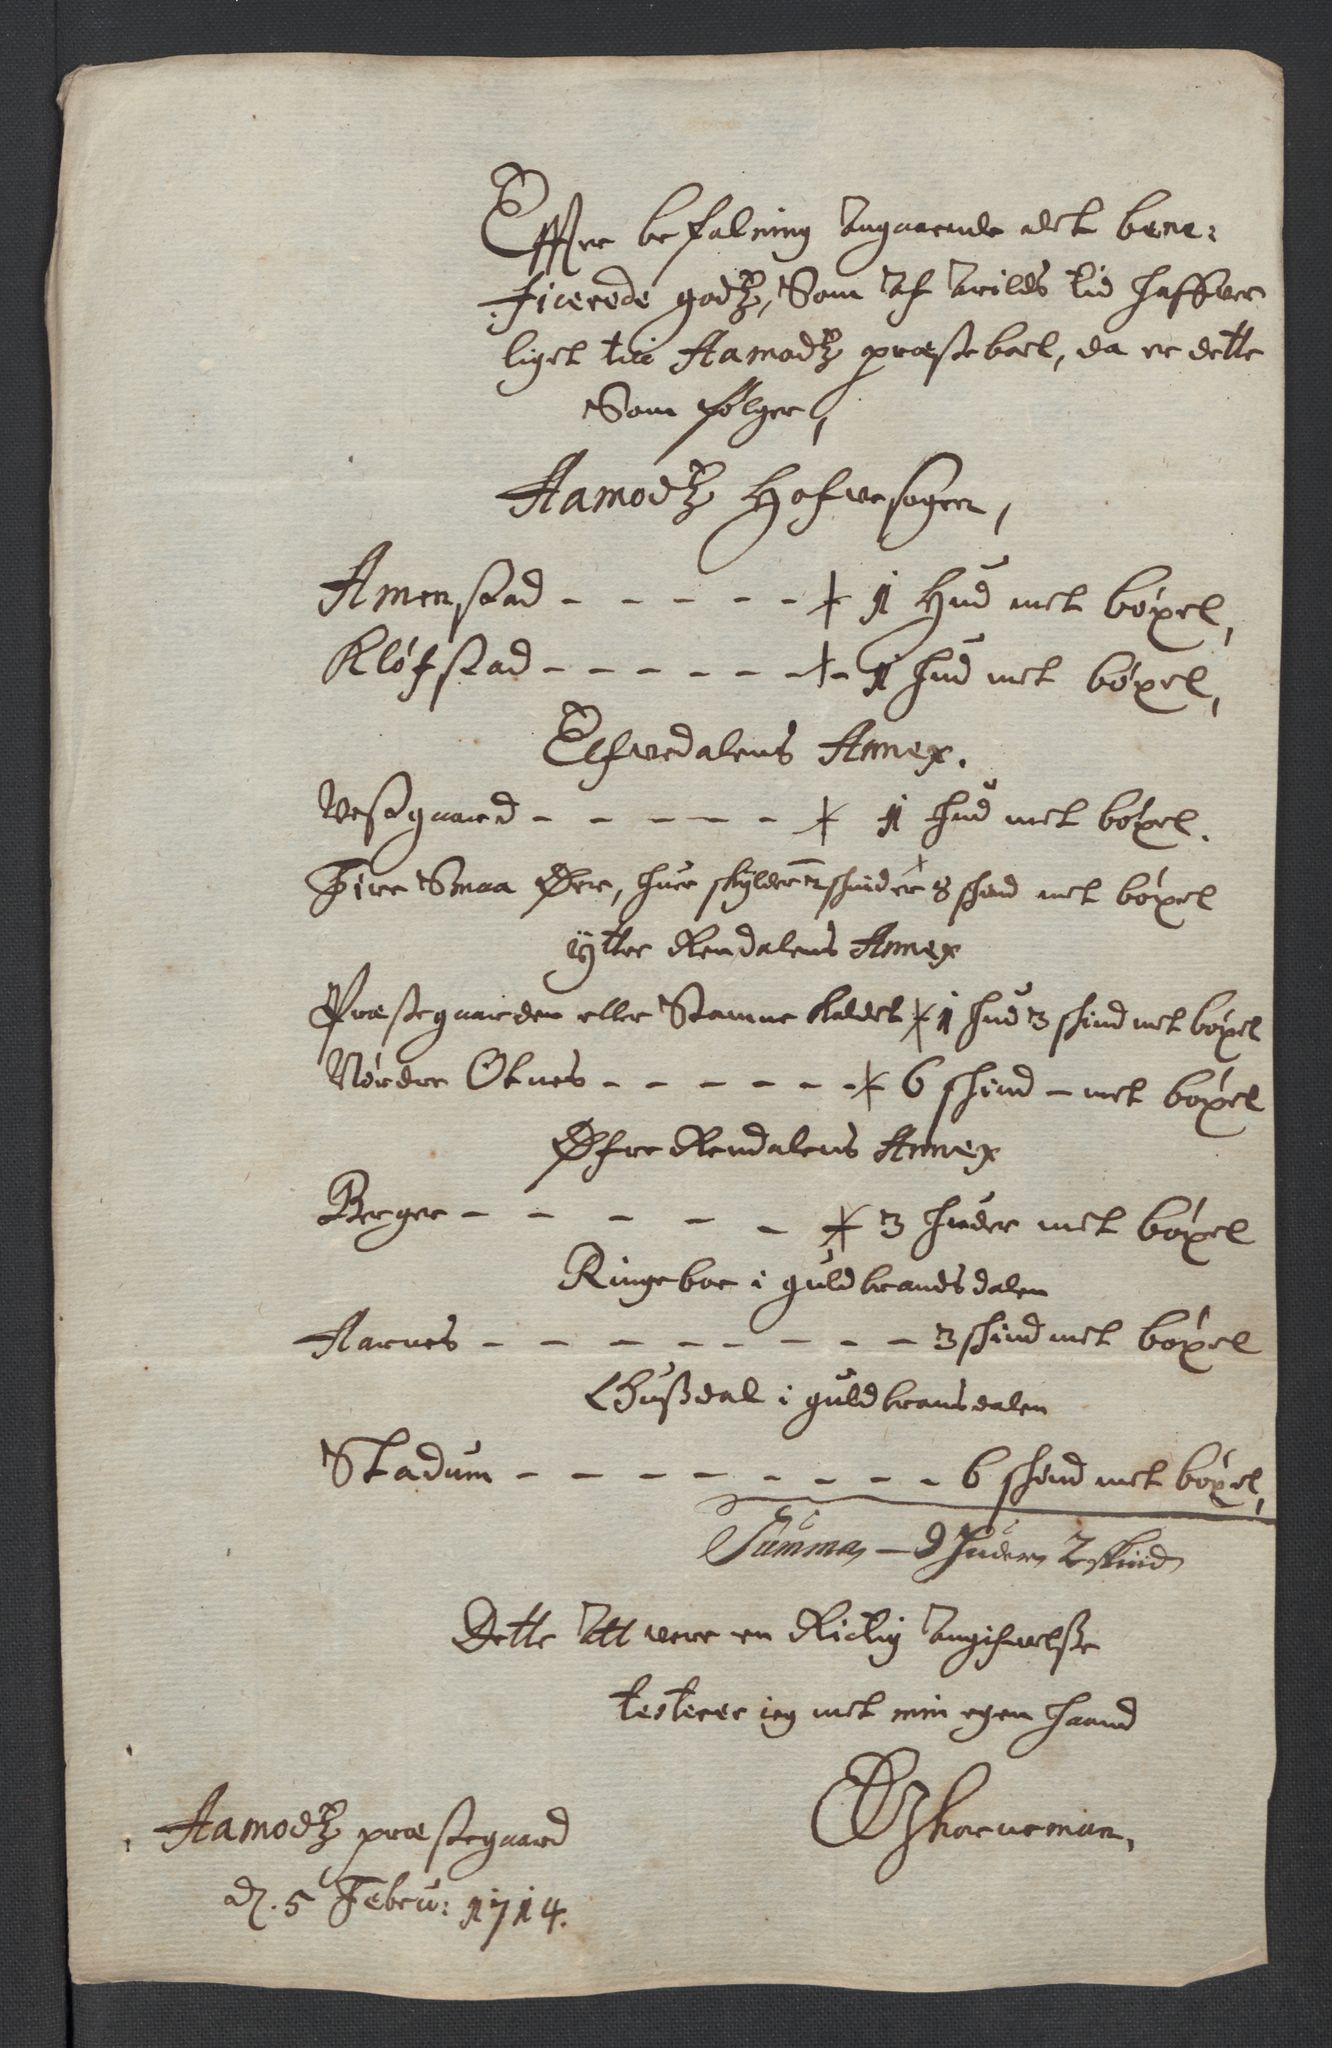 Effter befalning Angaaende det bene:
ficerede godtz, Som Af Arilds tid haffver
liget till Aamodtz præsteboel, da er dette
Som følger,
Aamodtz Hofvesogen,
Amenstad - - - - - + 1 Hud met bøxel,
Kløfstad - - - - - - + - 1 hud met bøxel,
Elfvedalens Annex.
Vestgaard - - - - - + 1 hud met bøxel.
Fire Smaa Øer, huer skylder 2 skind er + 8 skind met bøxel
Ÿtter Rendalens Annex
Præstegaarden eller Stamne kaldet + 1 hud 3 skind met bøxel
Nørdre Otnes - - - - - - + 6 skind - met bøxel
Øfre Rendalens Annex
Berger - - - - - + 3 huder met bøxel
Ringeboe i guldbrandsdalen
Aarnes - - - - - - - - - 3 skind met bøxel
i guldbransdalen
Stadum - - - - - - - - 6 skind met bøxel,
Summa - 9 Huder 2 skind
Dette Att vere en Rictig Angifvelsse
testerer ieg met min egen haand
Aamodtz præstegaard
d. 5 Febru: 1714.